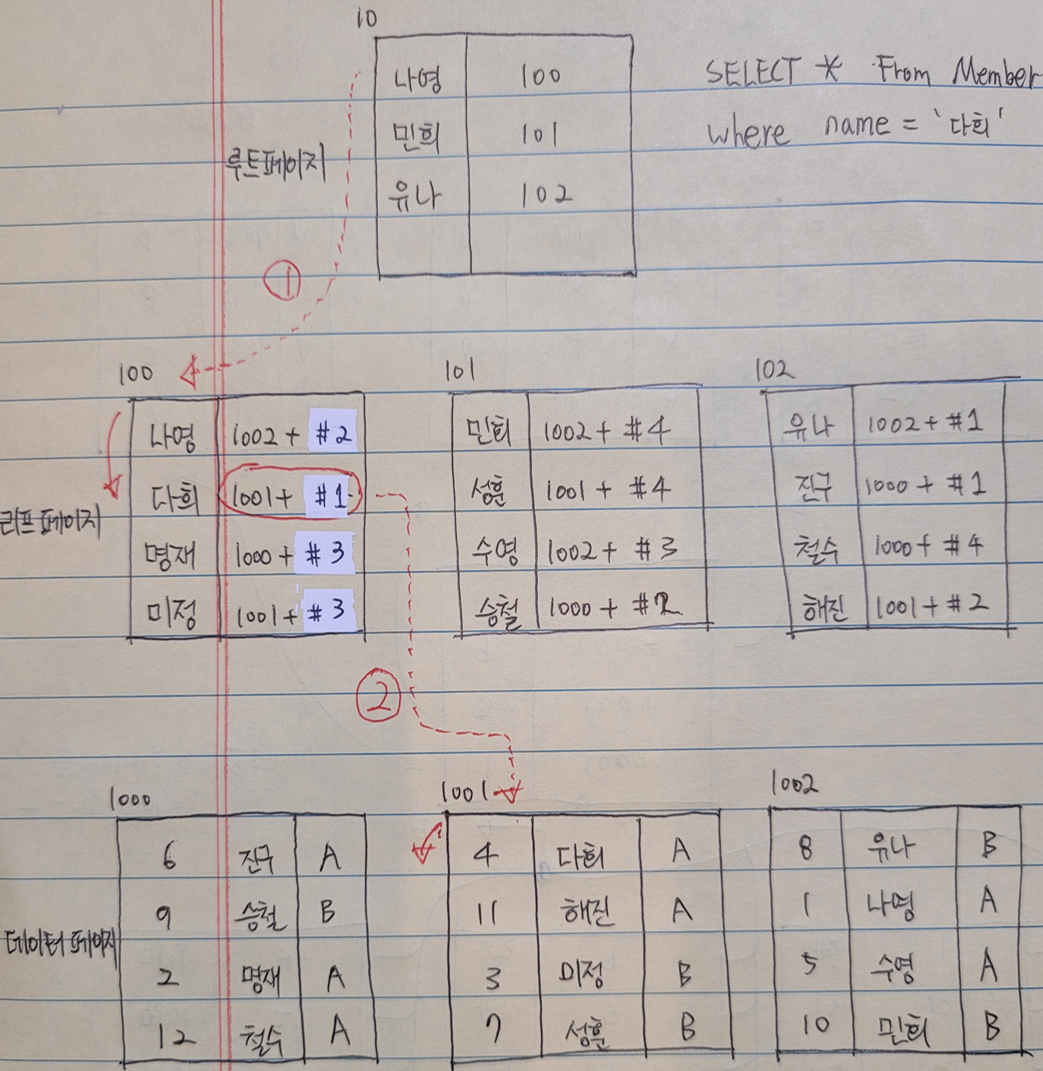 10
나영 100
민희 101
유나 102
루트페이지
SELECT * From Member
where name = '다희'
①
100
나영 1002 + #2
다희 1001 + #1
명재 1000 + #3
미정 1001 + #3
101
민희 1002 + #4
성훈 1001 + #4
수영 1002 + #3
승철 1000 + #2
102
유나 1002 + #1
진구 1000 + #1
철수 1000 + #4
해진 1001 + #2
리프페이지
②
1000
6 진구 A
9 승철 B
2 명재 A
12 철수 A
1001
4 다희 A
11 해진 A
3 미정 B
7 성훈 B
1002
8 유나 B
1 나영 A
5 수영 A
10 민희 B
데이터페이지